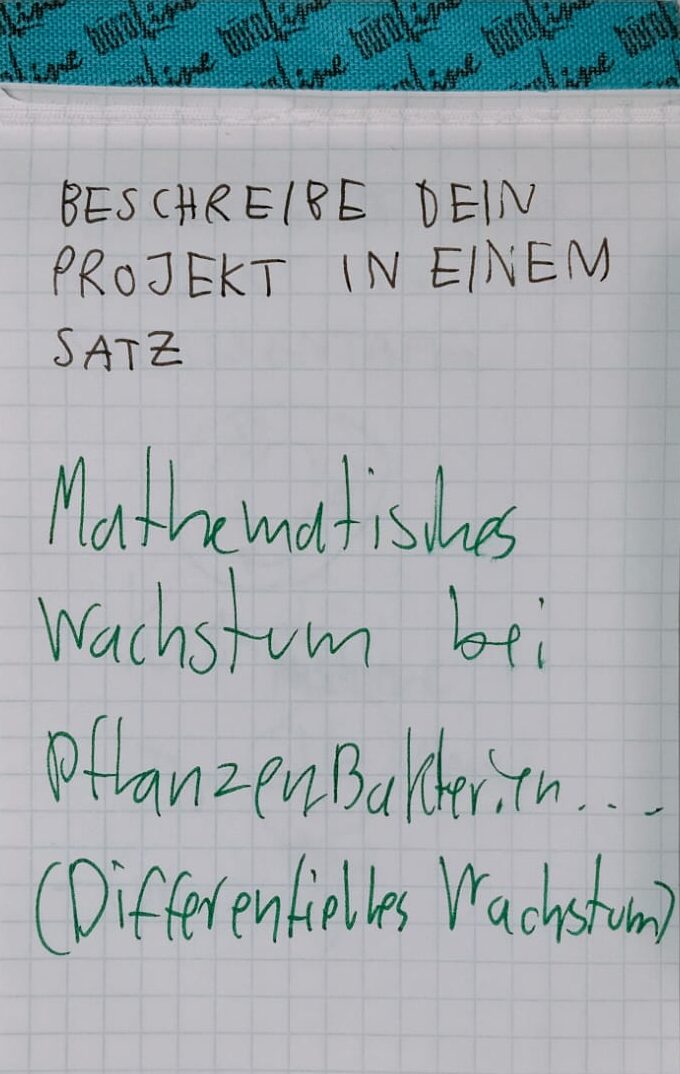 büroLine büroLine büroLine büroLine büroLine
büroLine büroLine büroLine büroLine
BESCHREIBE DEIN
PROJEKT IN EINEM
SATZ
Mathematisches
Wachstum bei
PflanzenBakterien...
(Differentielles Wachstum)